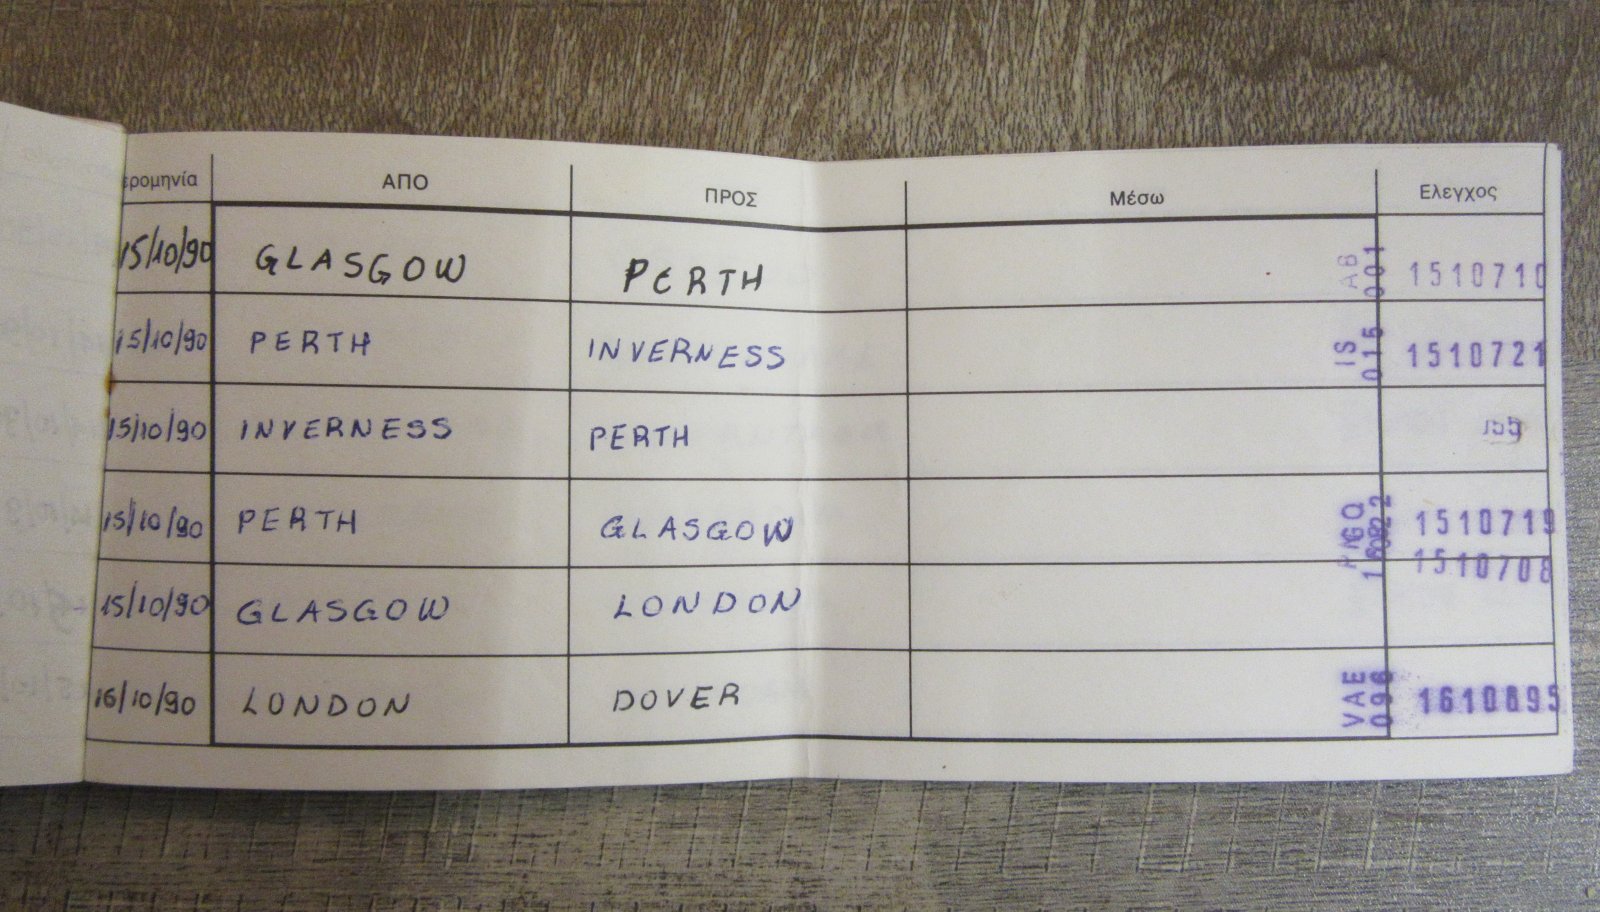 ερομηνία ΑΠΟ ΠΡΟΣ Μέσω Ελεγχος
15/10/90 GLASGOW PERTH AB 001 1510710
15/10/90 PERTH INVERNESS IS 015 1510721
15/10/90 INVERNESS PERTH
15/10/90 PERTH GLASGOW 1510719
1510708
15/10/90 GLASGOW LONDON
16/10/90 LONDON DOVER VAE 096 1610895